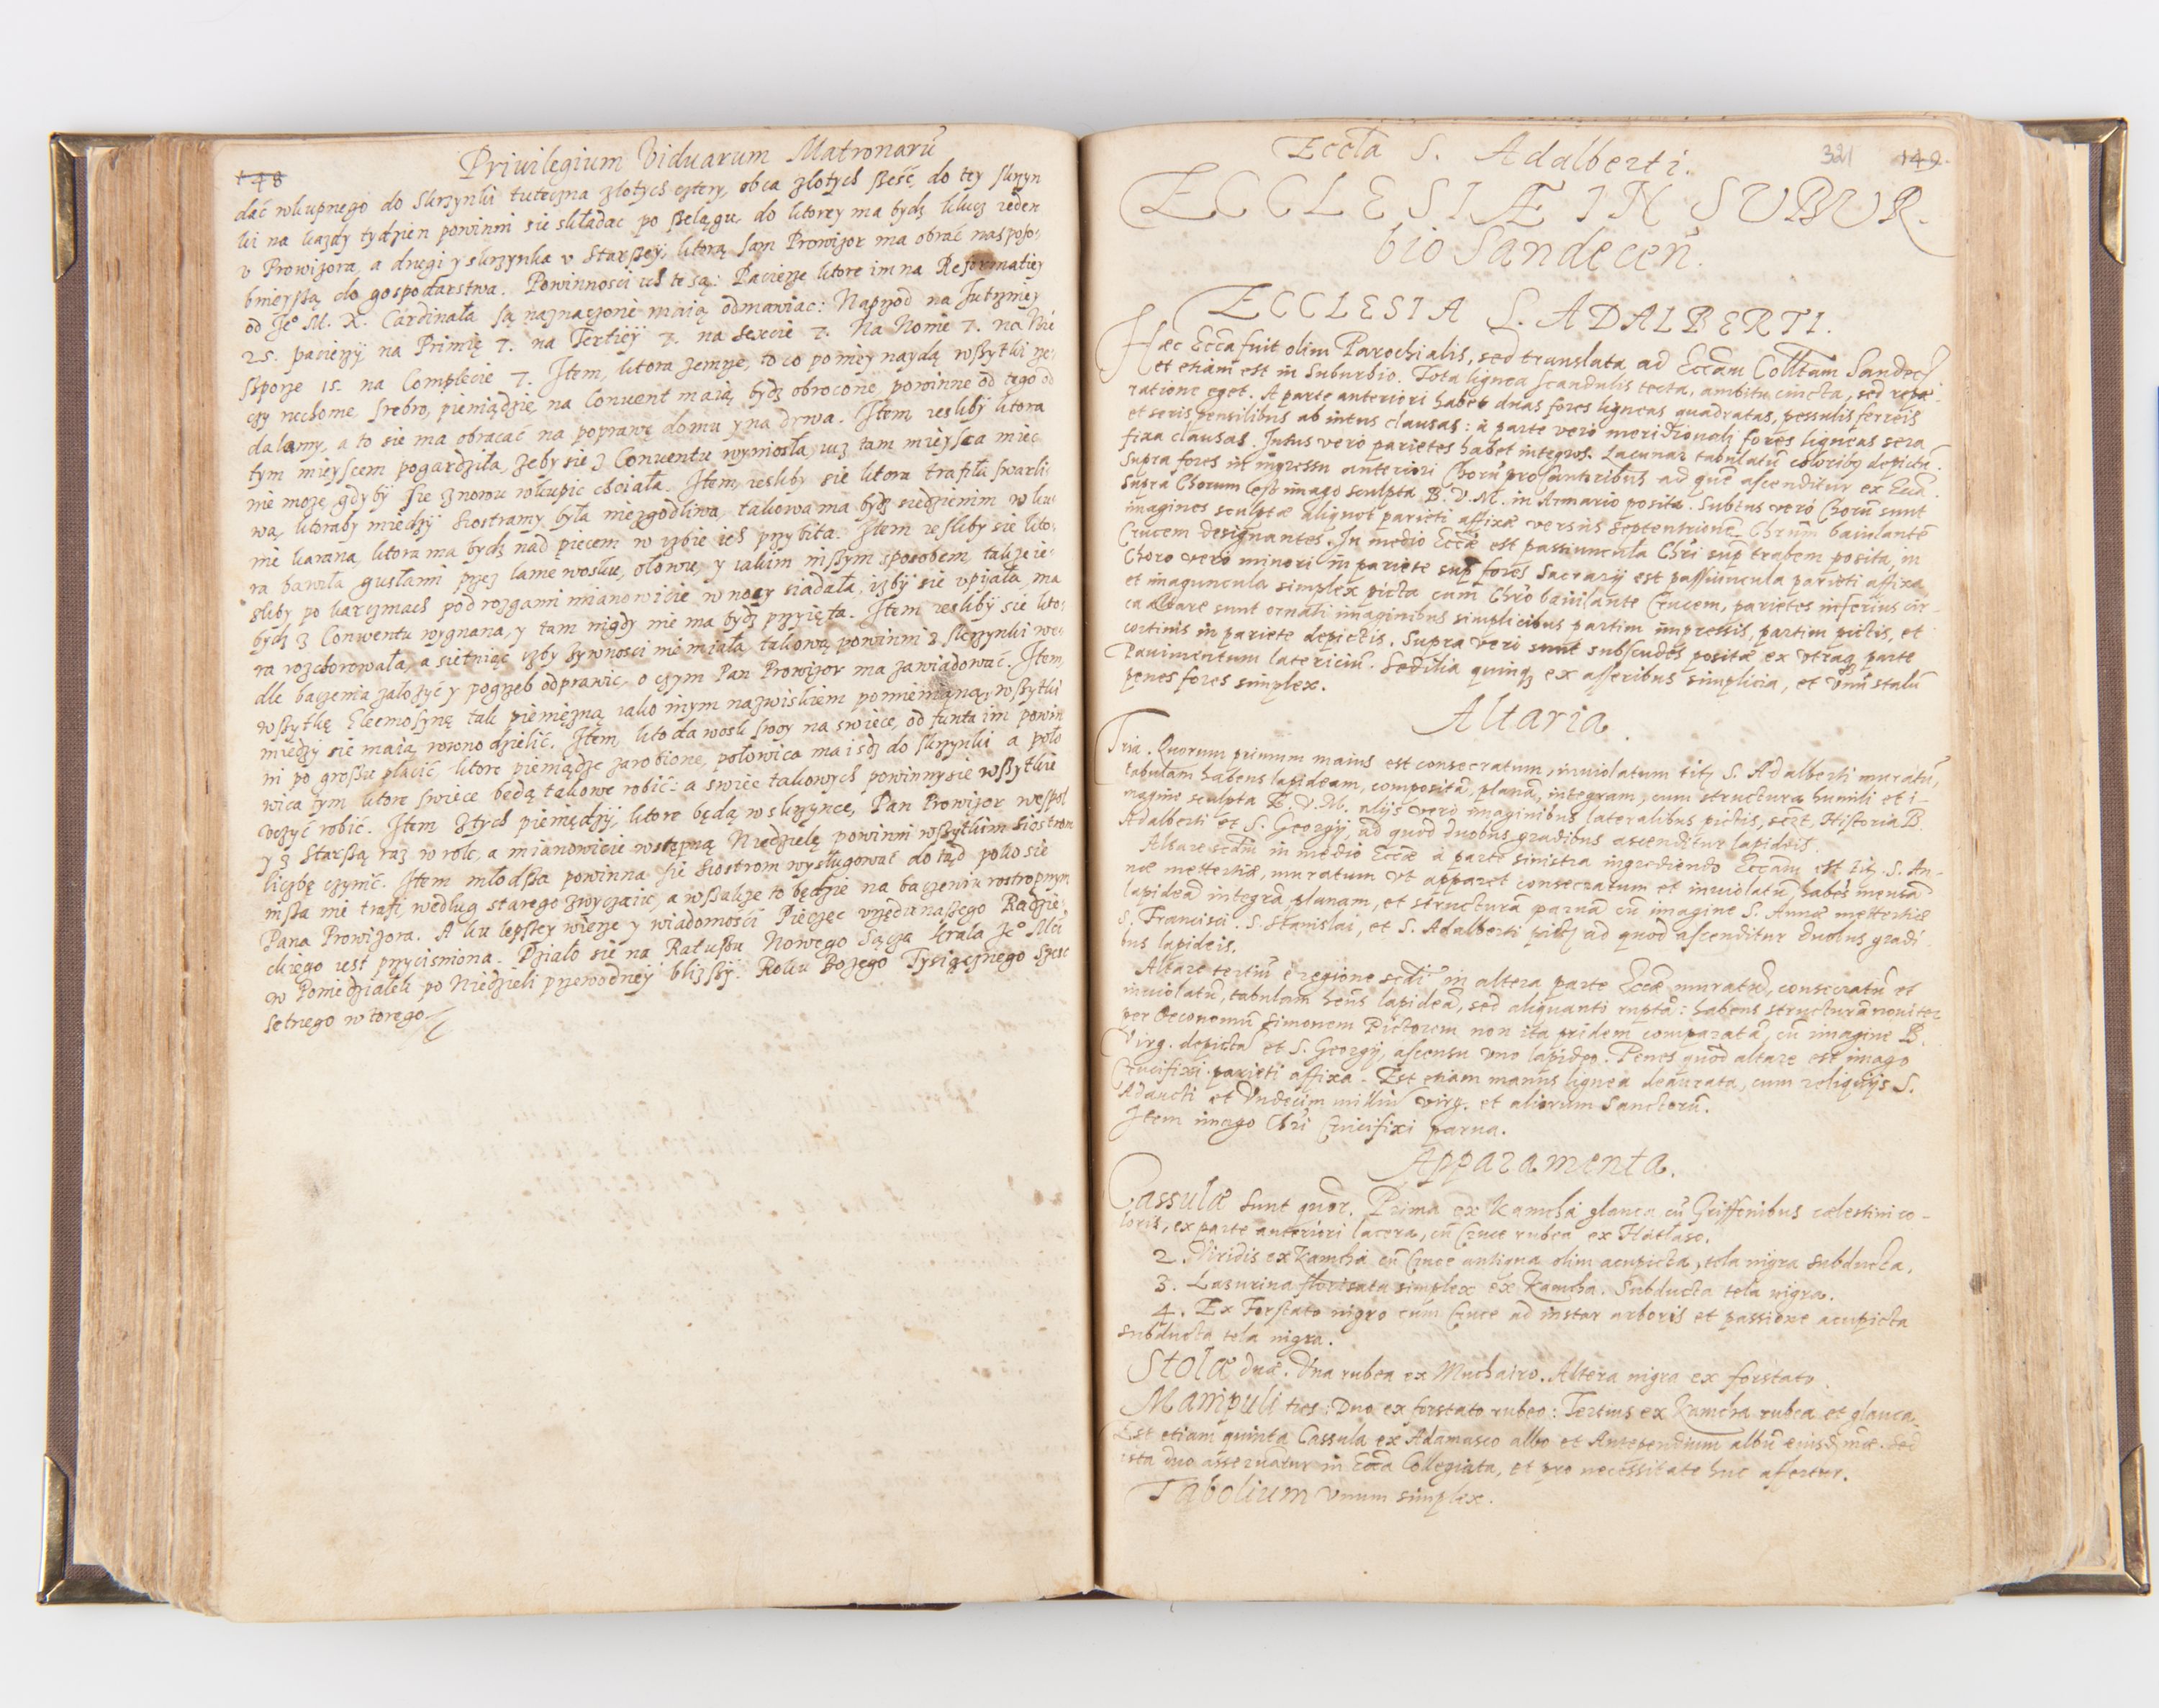 148
Priuilegium Viduarum Matronarũ
dać wkupnego do Skrzynki tuteczna złotych cztery, obca złotych sześć, do tey skrzyn
ki na każdy tydzien powinni sie składac po szelągu, do ktorey ma bydz klucz ieden
v Prowizora, a drugi y skrzynka v Starszey, ktorą sam Prowizor ma obrać nasposo:
bnieyszą do gospodarstwa. Powinnosci ich te są: Pacierze ktore im na Reformatiey
od Je° M. X. Cardinała są naznaczone maią odmawiac: Naprzod na Jutrzniey
25. pacierzy na Primię 7. na Tertiey 7. na Sexcie 7. Na Nonie 7. na Nie
szporze 15. na Complecie 7. Item, ktora zemrze, to co po niey naydą wszytki rze:
czy ruchome srebro, pieniądzie na Convent maią bydz obrocone, powinne od tego od
dalamy, a to sie ma obracać na poprawę domu y na drwa. Item iesliby ktora
tym mieyscem pogardziła, zeby sie z Conuentu wyniosła, iuz tam mieysca miec
nie moze, gdyby sie znowu wkupic chciała. Item, iesliby sie ktora trafiła swarli:
wa, ktoraby miedzy siostramy była niezgodliwa, takowa ma bydz siedzienim w ku:
nie karana, ktora ma bydz nad piecem w izbie ich przybita. Item iesliby sie kto:
ra bawiła gusłami przez lanie wosku, ołowu, y iakim inszym sposobem, takze ie:
sliby po karczmach pod rozgami mianowicie w nocy siadała, izby sie vpijała, ma
bydz z Conwentu wygnana, y tam nigdy nie ma bydz przyięta. Item iesliby sie kto:
ra rozchorowała, a sietniąc izby zywnosci nie miała, takową powinni z skrzynki we:
dle baczenia założyć y pogrzeb odprawic, o czym Pan Prowizor ma zawiadować. Item,
wszytkę Eleemosynę tak pieniężną iako inym nazwiskiem pomienioną, wszytki
miedzy sie maią rowno dzielić. Item, kto da wosk swoy na swiece, od funta im powin
ni po groszu płacić, ktore pieniądze zarobione, połowica ma isdz do skrzynki a poło
wica tym ktore swiece będą takowe robić: a swiec takowych powinny sie wszytkie
vczyć robić. Item z tych pieniędzy, ktore będą w skrzynce, Pan Prowizor wespoł
y z Starszą raz w rok, a mianowicie wstępną Niedzielę powinni wszytkim siostrom
liczbę czynić. Item młodsza powinna sie siostrom wysługować do tąd poko sie
insza nie trafi, według starego zwyczaiu, a wszakze to będzie na baczeniu rostropnym
Pana Prowizora. A ku lepszey wierze y wiadomości Pieczęc vrzędu naszego Radzie:
ckiego iest przycisniona. Działo sie na Ratuszu Nowego Sącza krola Je° Mći
w Poniedziałek po Niedzieli przewodney blizszy. Roku Bozego Tysiącznego Szesc
setnego wtorego.
Eccl̃a S. Adalberti.
321 149.
ECCLESIÆ IN SUBUR-
bio Sandeceñ.
ECCLESIA S. ADALBERTI.
Hæc Ecc̃a fuit olim Parochialis, sed translata ad Ecc̃am Collt̃am Sandec̃
et etiam est in Suburbio. Tota lignea scandulis tecta, ambitu cincta, sed repa-
ratione eget. A parte anteriori habet duas fores ligneas quadratas, pessulis ferreis
et seris pensilibus ab intus clausas: à parte vero meridionali fores ligneas sera
fixa clausas. Intus vero parietes habet integros. Lacunar tabulatũ coloribꝫ depictũ.
Supra fores in ingressu anteriori Chorũ pro Cantoribus ad quẽ ascenditur ex Ecc̃a.
Supra Chorum est imago sculpta B. V. M. in Armario posita. Subtus vero Chorũ sunt
imagines sculptæ aliquot parieti affixæ versus Septentrionẽ Chrũm baiulantẽ
Crucem designantes. In medio Eccæ̃ est passiuncula Chr̃i sup̃ trabem posita, in
Choro vero minori in pariete sup̃ fores Sacrarij est passiuncula parieti affixa,
et imaguncula simplex picta cum Chr̃o baiulante Crucem, parietes inferius cir-
ca altare sunt ornati imaginibus simplicibus partim impressis, partim pictis, et
cortinis in pariete depictis. Supra vero sunt subscudes positæ ex vtraqꝫ parte
Pauimentum latericiũ. Sedilia quinqꝫ ex asseribus simplicia, et vnũ stalũ
penes fores simplex.
Altaria.
Tria. Quorum primum maius est consecratum, inuiolatum titꝫ S. Adalberti muratũ,
tabulam habens lapideam, compositã, planã, integram, cum structura humili et i-
magine sculpta B. V. M. alijs vero imaginibus lateralibus pictis, sczt, Historia B
Adalberti et S. Georgij, ad quod duobus gradibus ascenditur lapideis.
Altare scdm̃ in medio Eccæ̃ à parte sinistra ingrediendo Ecc̃am est titꝫ S. An-
næ mettertiæ, muratum vt apparet consecratum et inuiolatũ habẽs mensã
lapideã integrã, planam, et structurã paruã cũ imagine S. Annæ mettertiæ
S. Francisci. S. Stanislai, et S. Adalberti pictꝫ ad quod ascenditur duobus gradi
bus lapideis.
Altare tertiũ è regione scdi in altera parte Eccæ̃ muratũ, consecratũ et
inuiolatũ, tabulam hẽns lapideã, sed aliquanti ruptã: habens structurã nouiter
per Oeconomũ Simonem Pictorem non ita pridem comparatã, cũ imagine B.
Virg. depicta et S. Georgij, ascensu vno lapideo. Penes quod altare est imago
Crucifixi parieti affixa. Est etiam manus lignea deaurata, cum reliquijs S.
Adaucti et Vndecim milliũ virg. et aliorum Sanctorũ.
Item imago Chr̃i Crucifixi parua.
Apparamenta.
Cassulæ sunt quõr. Prima ex Kamcha glauca cũ Griffonibus cælestini co-
loris, ex parte anteriori lacera, cũ Cruce rubea ex Hatłaso.
2. Viridis ex Kamcha cũ Cruce antiqua olim acupicta, tela nigra subducta.
3. Lasurina florisata simplex ex Kamcha. Subducta tela nigra.
4. Ex Forstato nigro cum Cruce ad instar arboris et passione acupicta
subducta tela nigra.
Stolæ duæ. Vna rubea ex Muchairo. Altera nigra ex forstato.
Manipuli tres: Duo ex forstato rubeo: Tertius ex Kamcha rubea et glauca.
Est etiam quinta Cassula ex Adamasco albo et Antependium albũ eiusdꝫ mæ̃. sed
ista duo asseruãtur in Ecc̃a Collegiata, et pro necessitate huc affertur.
Tobolium vnum simplex.